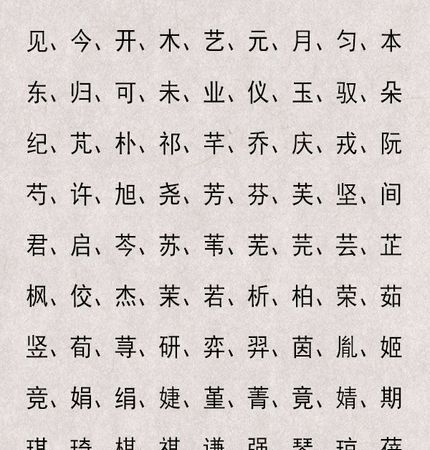 见、今、开、木、艺、元、月、匀、本
东、归、可、未、业、仪、玉、驭、朵
纪、芃、朴、祁、芊、乔、庆、戎、阮
芍、许、旭、尧、芳、芬、芙、坚、间
君、启、芩、苏、苇、芜、芫、芸、芷
枫、佼、杰、茉、若、析、柏、荣、茹
竖、荀、荨、研、弈、羿、茵、胤、姬
竞、娟、绢、婕、堇、菁、竟、婧、期
琪、琦、棋、祺、谦、强、琴、琼、蓓